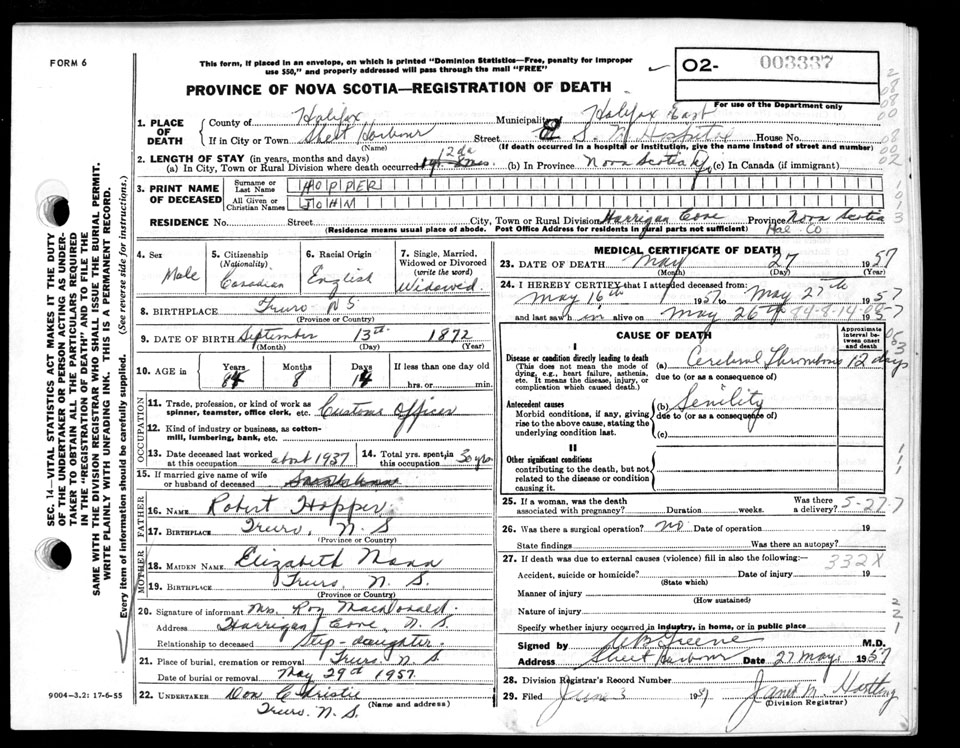 FORM 6
This form, if placed in an envelope, on which is printed "Dominion Statistics—Free, penalty for improper
use $50," and properly addressed will pass through the mail "FREE"
02- 003337
For use of the Department only
PROVINCE OF NOVA SCOTIA—REGISTRATION OF DEATH
1. PLACE OF DEATH
County of Halifax Municipality of Halifax East
If in City or Town Sheet Harbour Street E. S. M. Hospital House No.
(Name) (If death occurred in a hospital or institution, give the name instead of street and number)
2. LENGTH OF STAY (in years, months and days) 12 da
(a) In City, Town or Rural Division where death occurred (b) In Province Nova Scotia (c) In Canada (if immigrant)
3. PRINT NAME OF DECEASED
Surname or Last Name HOPPER
All Given or Christian Names JOHN
RESIDENCE No. Street City, Town or Rural Division Harrigan Cove Province Nova Scotia
(Residence means usual place of abode. Post Office Address for residents in rural parts not sufficient) Hal. Co
4. Sex Male
5. Citizenship (Nationality) Canadian
6. Racial Origin English
7. Single, Married, Widowed or Divorced (write the word) Widowed
8. BIRTHPLACE Truro N S
(Province or Country)
9. DATE OF BIRTH September 13th 1872
(Month) (Day) (Year)
10. AGE in Years Months Days If less than one day old
84 8 14 hrs. or min.
OCCUPATION
11. Trade, profession, or kind of work as spinner, teamster, office clerk, etc. Customs Officer
12. Kind of industry or business, as cotton-mill, lumbering, bank, etc.
13. Date deceased last worked at this occupation about 1937
14. Total yrs. spent in this occupation 30 yrs
15. If married give name of wife or husband of deceased
FATHER
16. NAME Robert Hopper
17. BIRTHPLACE Truro, N. S.
(Province or Country)
MOTHER
18. MAIDEN NAME Elizabeth Mann
19. BIRTHPLACE Truro, N. S.
(Province or Country)
20. Signature of informant Mrs. Roy MacDonald.
Address Harrigan Cove, N. S.
Relationship to deceased Step-daughter.
21. Place of burial, cremation or removal Truro N. S
Date of burial or removal May 29th 1957.
22. UNDERTAKER Don Christie
Truro. N. S. (Name and address)
MEDICAL CERTIFICATE OF DEATH
23. DATE OF DEATH May 27 1957
(Month) (Day) (Year)
24. I HEREBY CERTIFY that I attended deceased from:
May 16th 1957 to May 27th 1957
and last saw h im alive on May 26 1957
84-8-14
CAUSE OF DEATH
Approximate interval between onset and death
I
Disease or condition directly leading to death
(This does not mean the mode of dying, e.g., heart failure, asthenia, etc. It means the disease, injury, or complication which caused death.)
(a) Cerebral Thrombosis 12 days
due to (or as a consequence of)
Antecedent causes
Morbid conditions, if any, giving rise to the above cause, stating the underlying condition last.
(b) Senility
due to (or as a consequence of)
(c)
II
Other significant conditions
contributing to the death, but not related to the disease or condition causing it.
25. If a woman, was the death associated with pregnancy? Duration weeks. Was there a delivery?
5-27-7
26. Was there a surgical operation? no Date of operation 19
State findings Was there an autopsy?
27. If death was due to external causes (violence) fill in also the following:—
332X
Accident, suicide or homicide? Date of injury 19
(State which)
Manner of injury
(How sustained)
Nature of injury
Specify whether injury occurred in industry, in home, or in public place
Signed by C B Greene M.D.
Address Sheet Harbour Date 27 May 1957
28. Division Registrar's Record Number
29. Filed June 3 1957
(Division Registrar)
SEC. 14—VITAL STATISTICS ACT MAKES IT THE DUTY
OF THE UNDERTAKER OR PERSON ACTING AS UNDER-
TAKER TO OBTAIN ALL THE PARTICULARS REQUIRED
IN THE "REGISTRATION OF DEATH" AND TO FILE THE
SAME WITH THE DIVISION REGISTRAR WHO SHALL ISSUE THE BURIAL PERMIT.
WRITE PLAINLY WITH UNFADING INK. THIS IS A PERMANENT RECORD.
Every item of information should be carefully supplied. (See reverse side for instructions.)
9004—3.2: 17-6-55